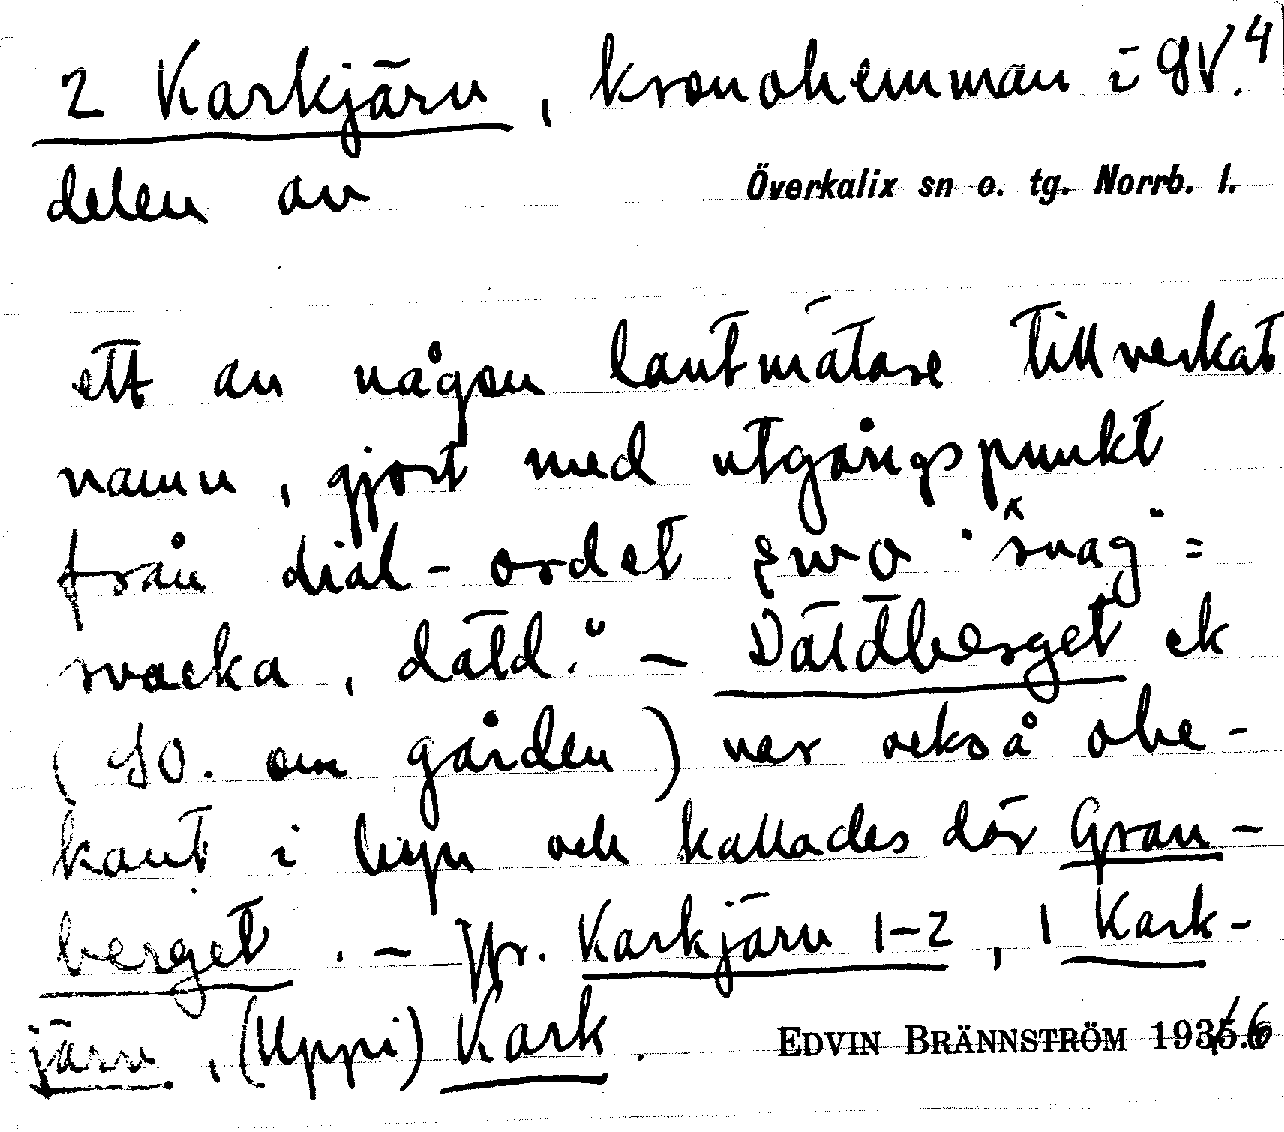 2 Karkjärv, kronohemman i SV.4
delen av
Överkalix sn o. tg. Norrb. l.
ett av någon lantmätare tillverkat
namn, gjort med utgångspunkt
från dial-ordet "svag" =
svacka, däld." – Däldberget ek
(SO. om gården) var också obe-
kant i byn och kallades där Gran-
berget. – Jfr. Karkjärv 1–2, 1 Kark-
järv, (Uppi) Kark.
EDVIN BRÄNNSTRÖM 1935.